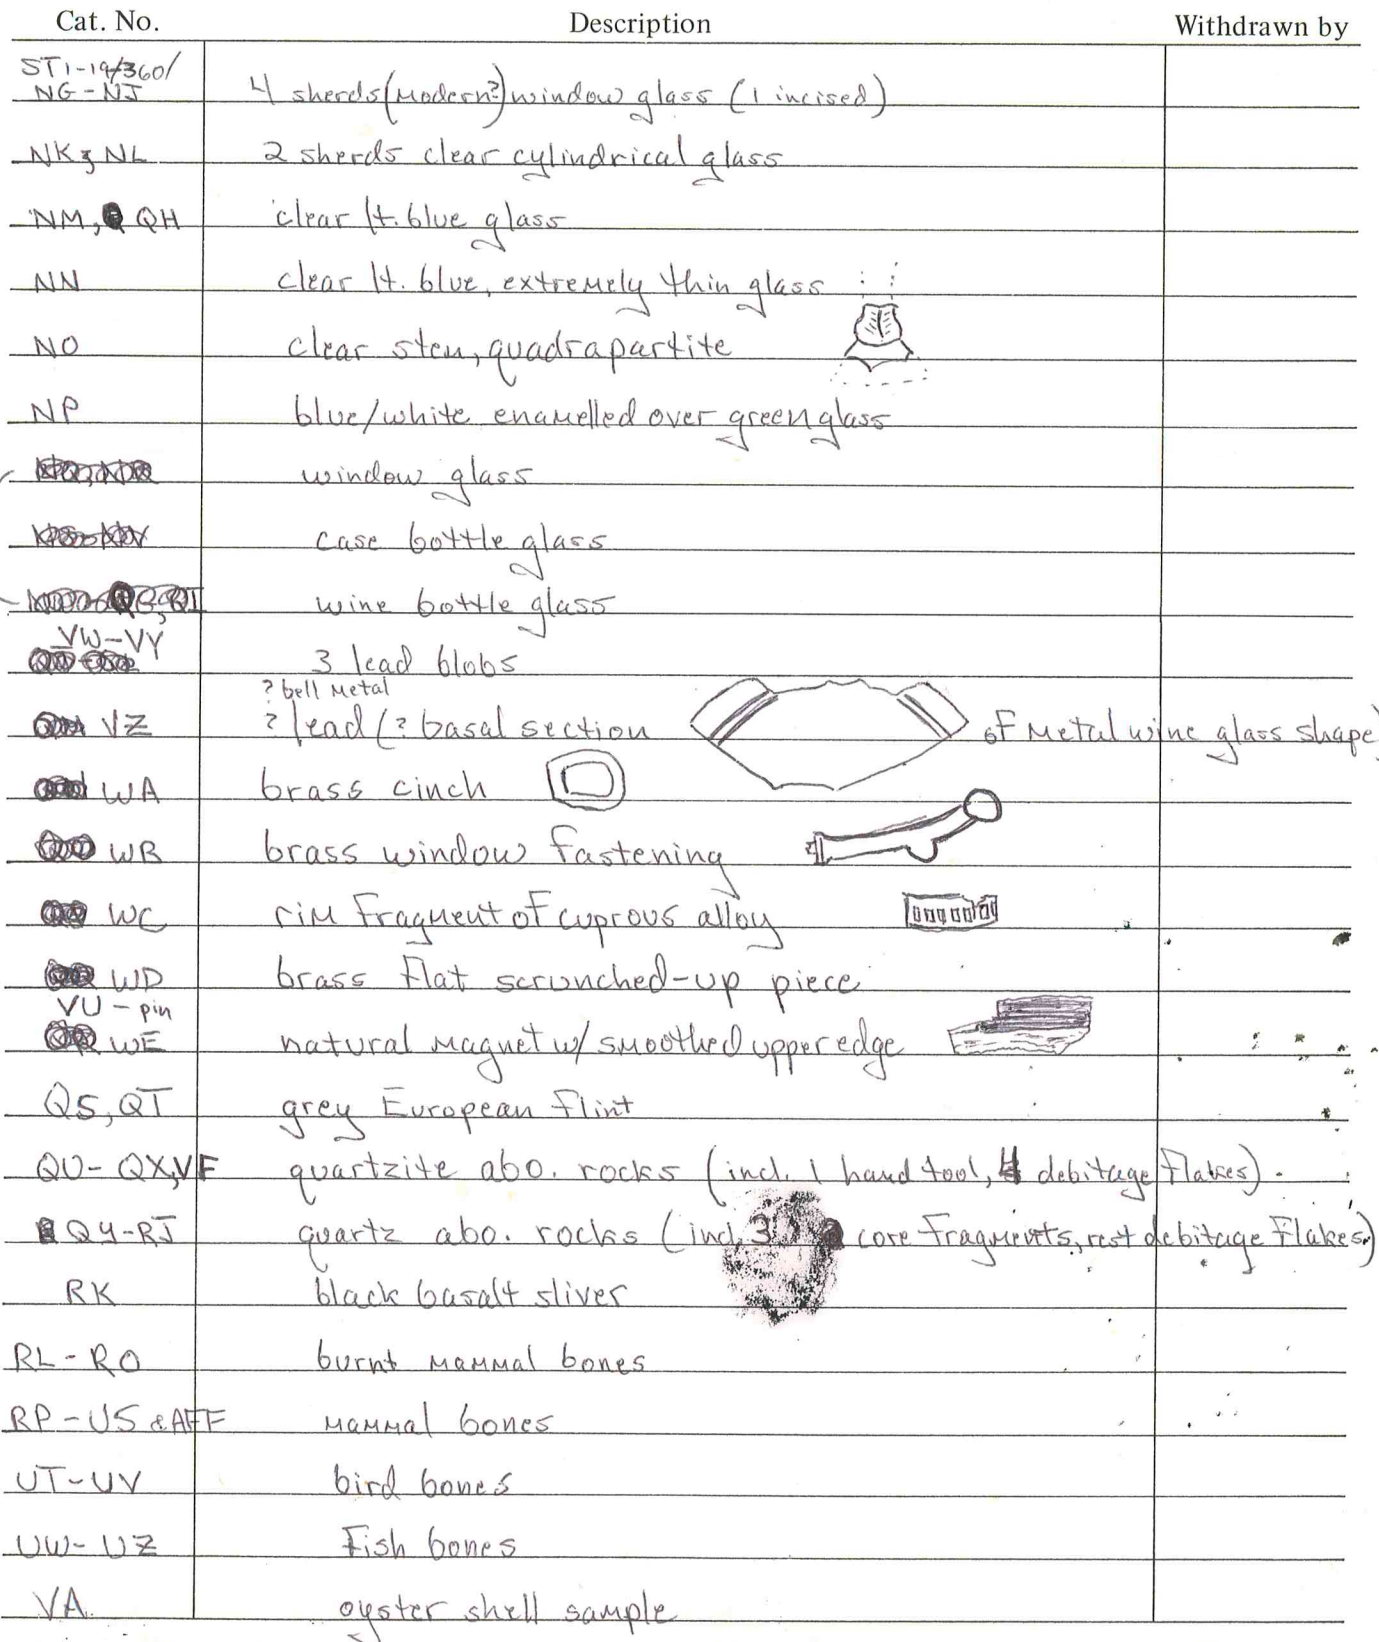 Cat. No. Description Withdrawn by
ST1-19/360/
NG-NJ 4 sherds (modern?) window glass (1 incised)
NK & NL 2 sherds clear cylindrical glass
NM, QH clear lt. blue glass
NN clear lt. blue, extremely thin glass
NO clear stem, quadrapartite
NP blue/white enamelled over green glass
window glass
case bottle glass
wine bottle glass
VW-VY
3 lead blobs
? bell metal
VZ ? lead (? basal section of metal wine glass shape)
WA brass cinch
WB brass window fastening
WC rim fragment of cuprous alloy
WD brass flat scrunched-up piece
VU - pin
WE natural magnet w/ smoothed upper edge
QS, QT grey European flint
QU- QX, VF quartzite abo. rocks (incl. 1 hand tool, 4 debitage flakes).
QY-RJ quartz abo. rocks (incl. 3 core fragments, rest debitage flakes.)
RK black basalt sliver
RL-RO burnt mammal bones
RP-US & AFF mammal bones
UT-UV bird bones
UW-UZ fish bones
VA oyster shell sample